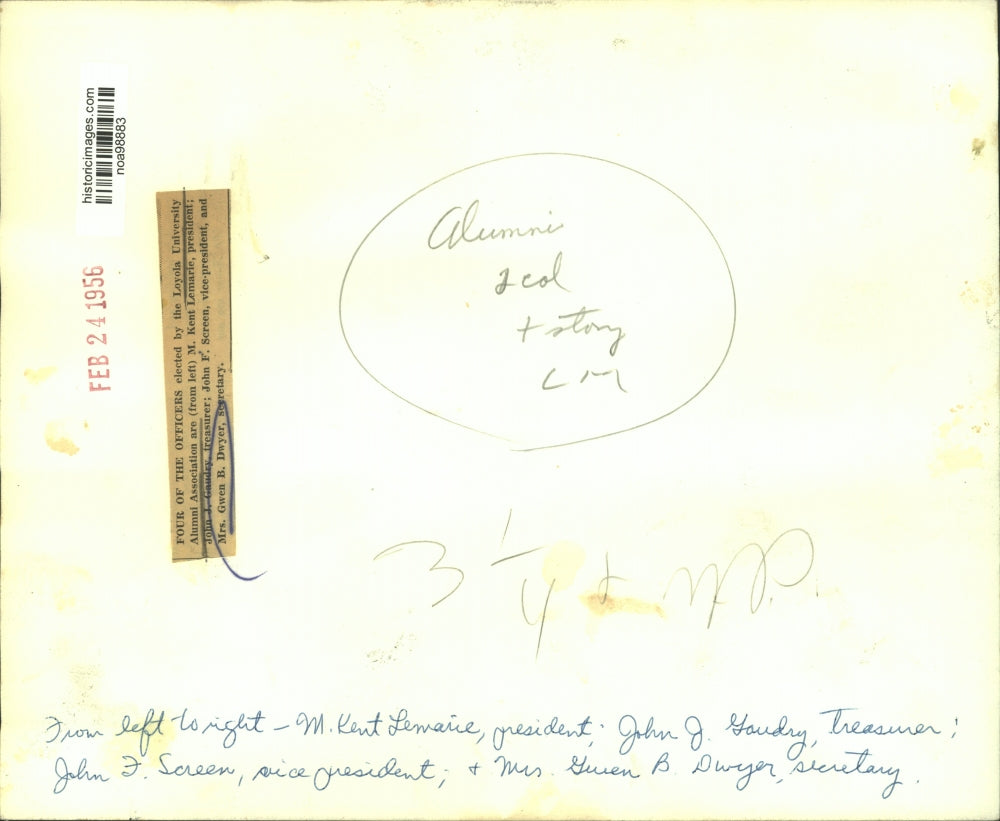 historicimages.com
noa98883
FEB 24 1956
FOUR OF THE OFFICERS elected by the Loyola University
Alumni Association are (from left) M. Kent Lemarie, president;
John J. Gaudry, treasurer; John F. Screen, vice-president, and
Mrs. Gwen B. Dwyer, secretary.
Alumni
2 col
+ story
3 1/4 x N.P.
From left to right – M. Kent Lemarie, president; John J. Gaudry, treasurer;
John F. Screen, vice president; + Mrs. Gwen B. Dwyer, secretary.